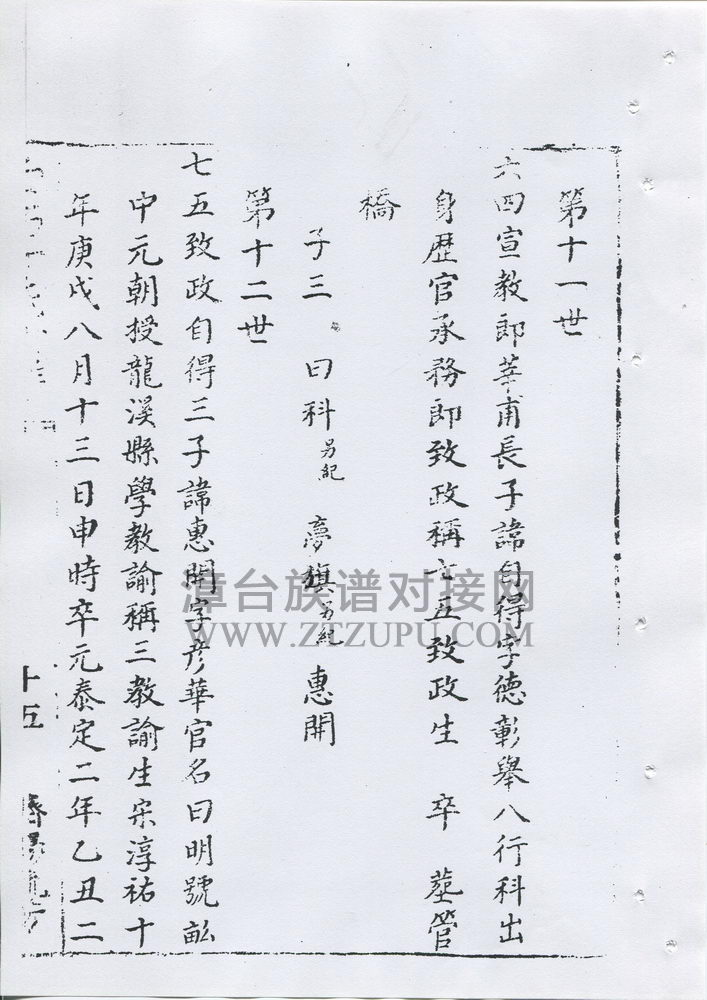 第十一世
六四宣教郎莘甫長子諱自得字德彰舉八行科出
身歷官承務郎致政稱七五致政生 卒 塟管
橋
子三 曰科另紀 夢旗另紀 惠開
第十二世
七五致政自得三子諱惠開字彥華官名曰明號畆
中元朝授龍溪縣學教諭稱三教諭生宋淳祐十
年庚戌八月十三日申時卒元泰定二年乙丑二
十五
漳台族谱对接网
WWW.ZTZUPU.COM